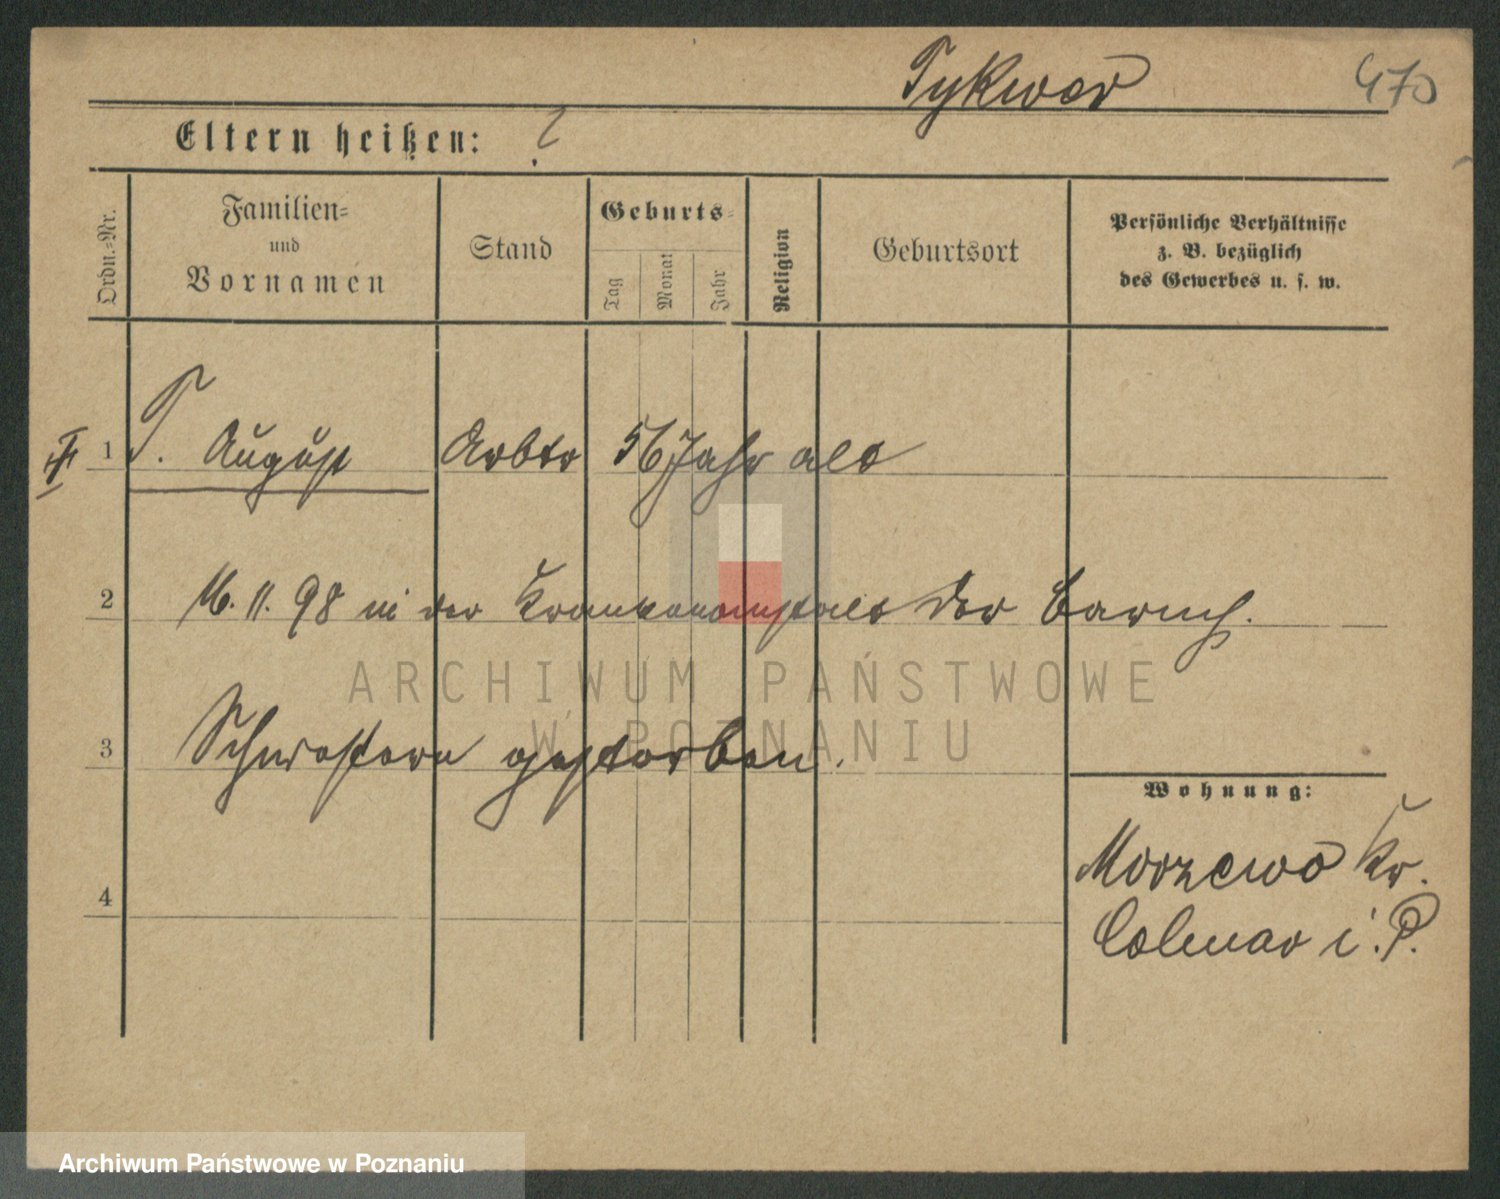 Tykwer 470
Eltern heißen: ?
Ordn.=Nr.
Familien=
und
Vornamen
Stand
Geburts=
Tag
Monat
Jahr
Religion
Geburtsort
Persönliche Verhältnisse
z. B. bezüglich
des Gewerbes u. s. w.
1 T. August Arbtr 56 Jahr alt
2 16. 11. 98 in der Krankenanstalt der barmh.
3 Schwestern gestorben.
4
Wohnung:
Morzewo Kr.
Colmar i. P.
ARCHIWUM PAŃSTWOWE
W POZNANIU
Archiwum Państwowe w Poznaniu